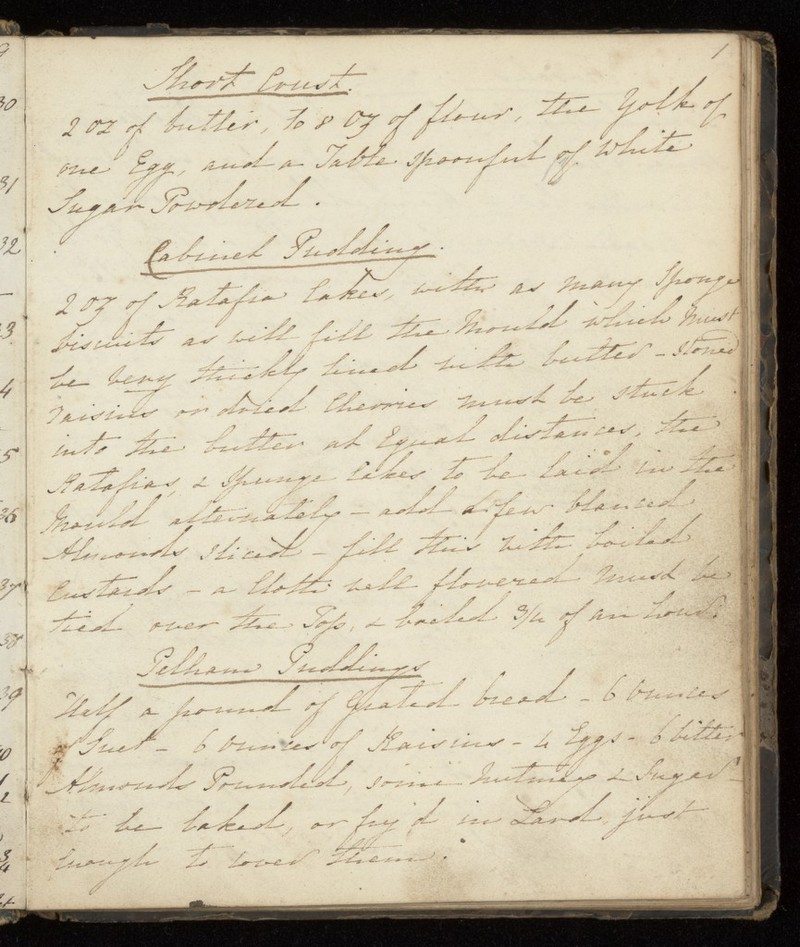 1
Short Crust.
2 oz of butter, to 8 oz of flour, the Yolk of
one Egg, and a Table spoonful of White
Sugar Powdered.
Cabinet Pudding.
2 oz of Ratafia Cakes, with as many Sponge
biscuits as will fill the Mould which Must
be very thickly lined with butter - Stoned
raisins or dried Cherries must be stuck
into the butter at Equal distances, the
Ratafias, & Spunge Cakes to be laid in the
Mould alternately - add a few blanced
Almonds sliced - fill this with boiled
Custards - a Cloth well flowered must be
tied over the Top, & boiled 3/4 of an hour.
Pelham Puddings
Half a pound of Grated bread - 6 Ounces
of Suet - 6 Ounces of Raisins - 4 Eggs - 6 bitter
Almonds Pounded, some Nutmeg & Sugar -
to be baked, or fry'd in Lard just
enough to cover them.
9
30
31
32
3
4
5
36
37
38
39